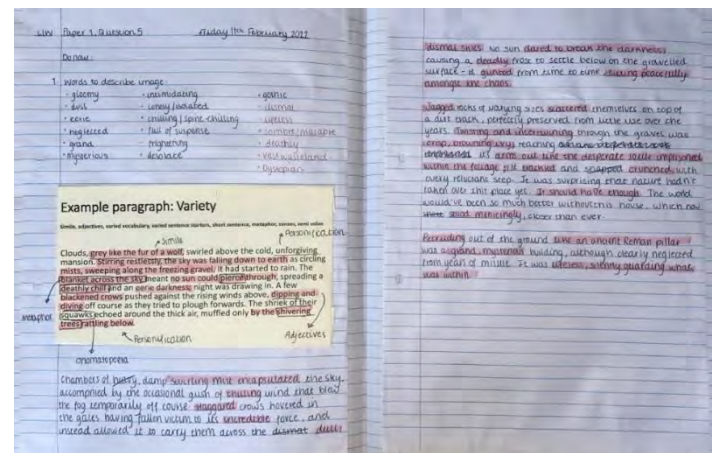 CLW Paper 1, Question 5 Friday 11th February 2022
Do now:
1. Words to describe image:
· gloomy · intimidating · gothic
· evil · lonely/isolated · dismal
· eerie · chilling/spine-chilling · lifeless
· neglected · full of suspense · sombre/macabre
· grand · frightening · deathly
· mysterious · desolate · vast wasteland
· Dystopian
Example paragraph: Variety
Simile, adjectives, varied vocabulary, varied sentence starters, short sentence, metaphor, senses, semi colon
Simile
Personification
Clouds, grey like the fur of a wolf, swirled above the cold, unforgiving
mansion. Stirring restlessly, the sky was falling down to earth as circling
mists, sweeping along the freezing gravel; it had started to rain. The
blanket across the sky meant no sun could pierce through, spreading a
deathly chill and an eerie darkness; night was drawing in. A few
blackened crows pushed against the rising winds above, dipping and
diving off course as they tried to plough forwards. The shriek of their
squawks echoed around the thick air, muffled only by the shivering
trees rattling below.
metaphor
Personification
Adjectives
onomatopoeia
Chambers of damp swirling mist encapsulated the sky,
accompnied by the occasional gush of wind that blew
the fog temporarily off course. Staggared crows hovered in
the gales having fallen victim to its incredible force, and
instead allowed it to carry them across the dismal
dismal skies. No sun dared to break the darkness
causing a deadly frost to settle below on the gravelled
surface - it glinted from time to time peacefully
amongst the chaos.
Jagged rocks of varying sizes scattered themselves on top of
a dirt track, perfectly preserved from little use over the
years. Twisting and intertwining through the graves was
crisp, browning ivys reaching
its arms out like the desperate souls imprisoned
within the foliage just and crunched with
every reluctant step. It was surprising that nature hadn't
taken over this place yet. It should have though. The world
would've been so much better without this house, which now
stood menacingly, closer than ever.
Protruding out of the ground like an ancient Roman pillar
was a grand, mysterious building, although clearly neglected
from years of misuse. It was lifeless, silently guarding what
was within.